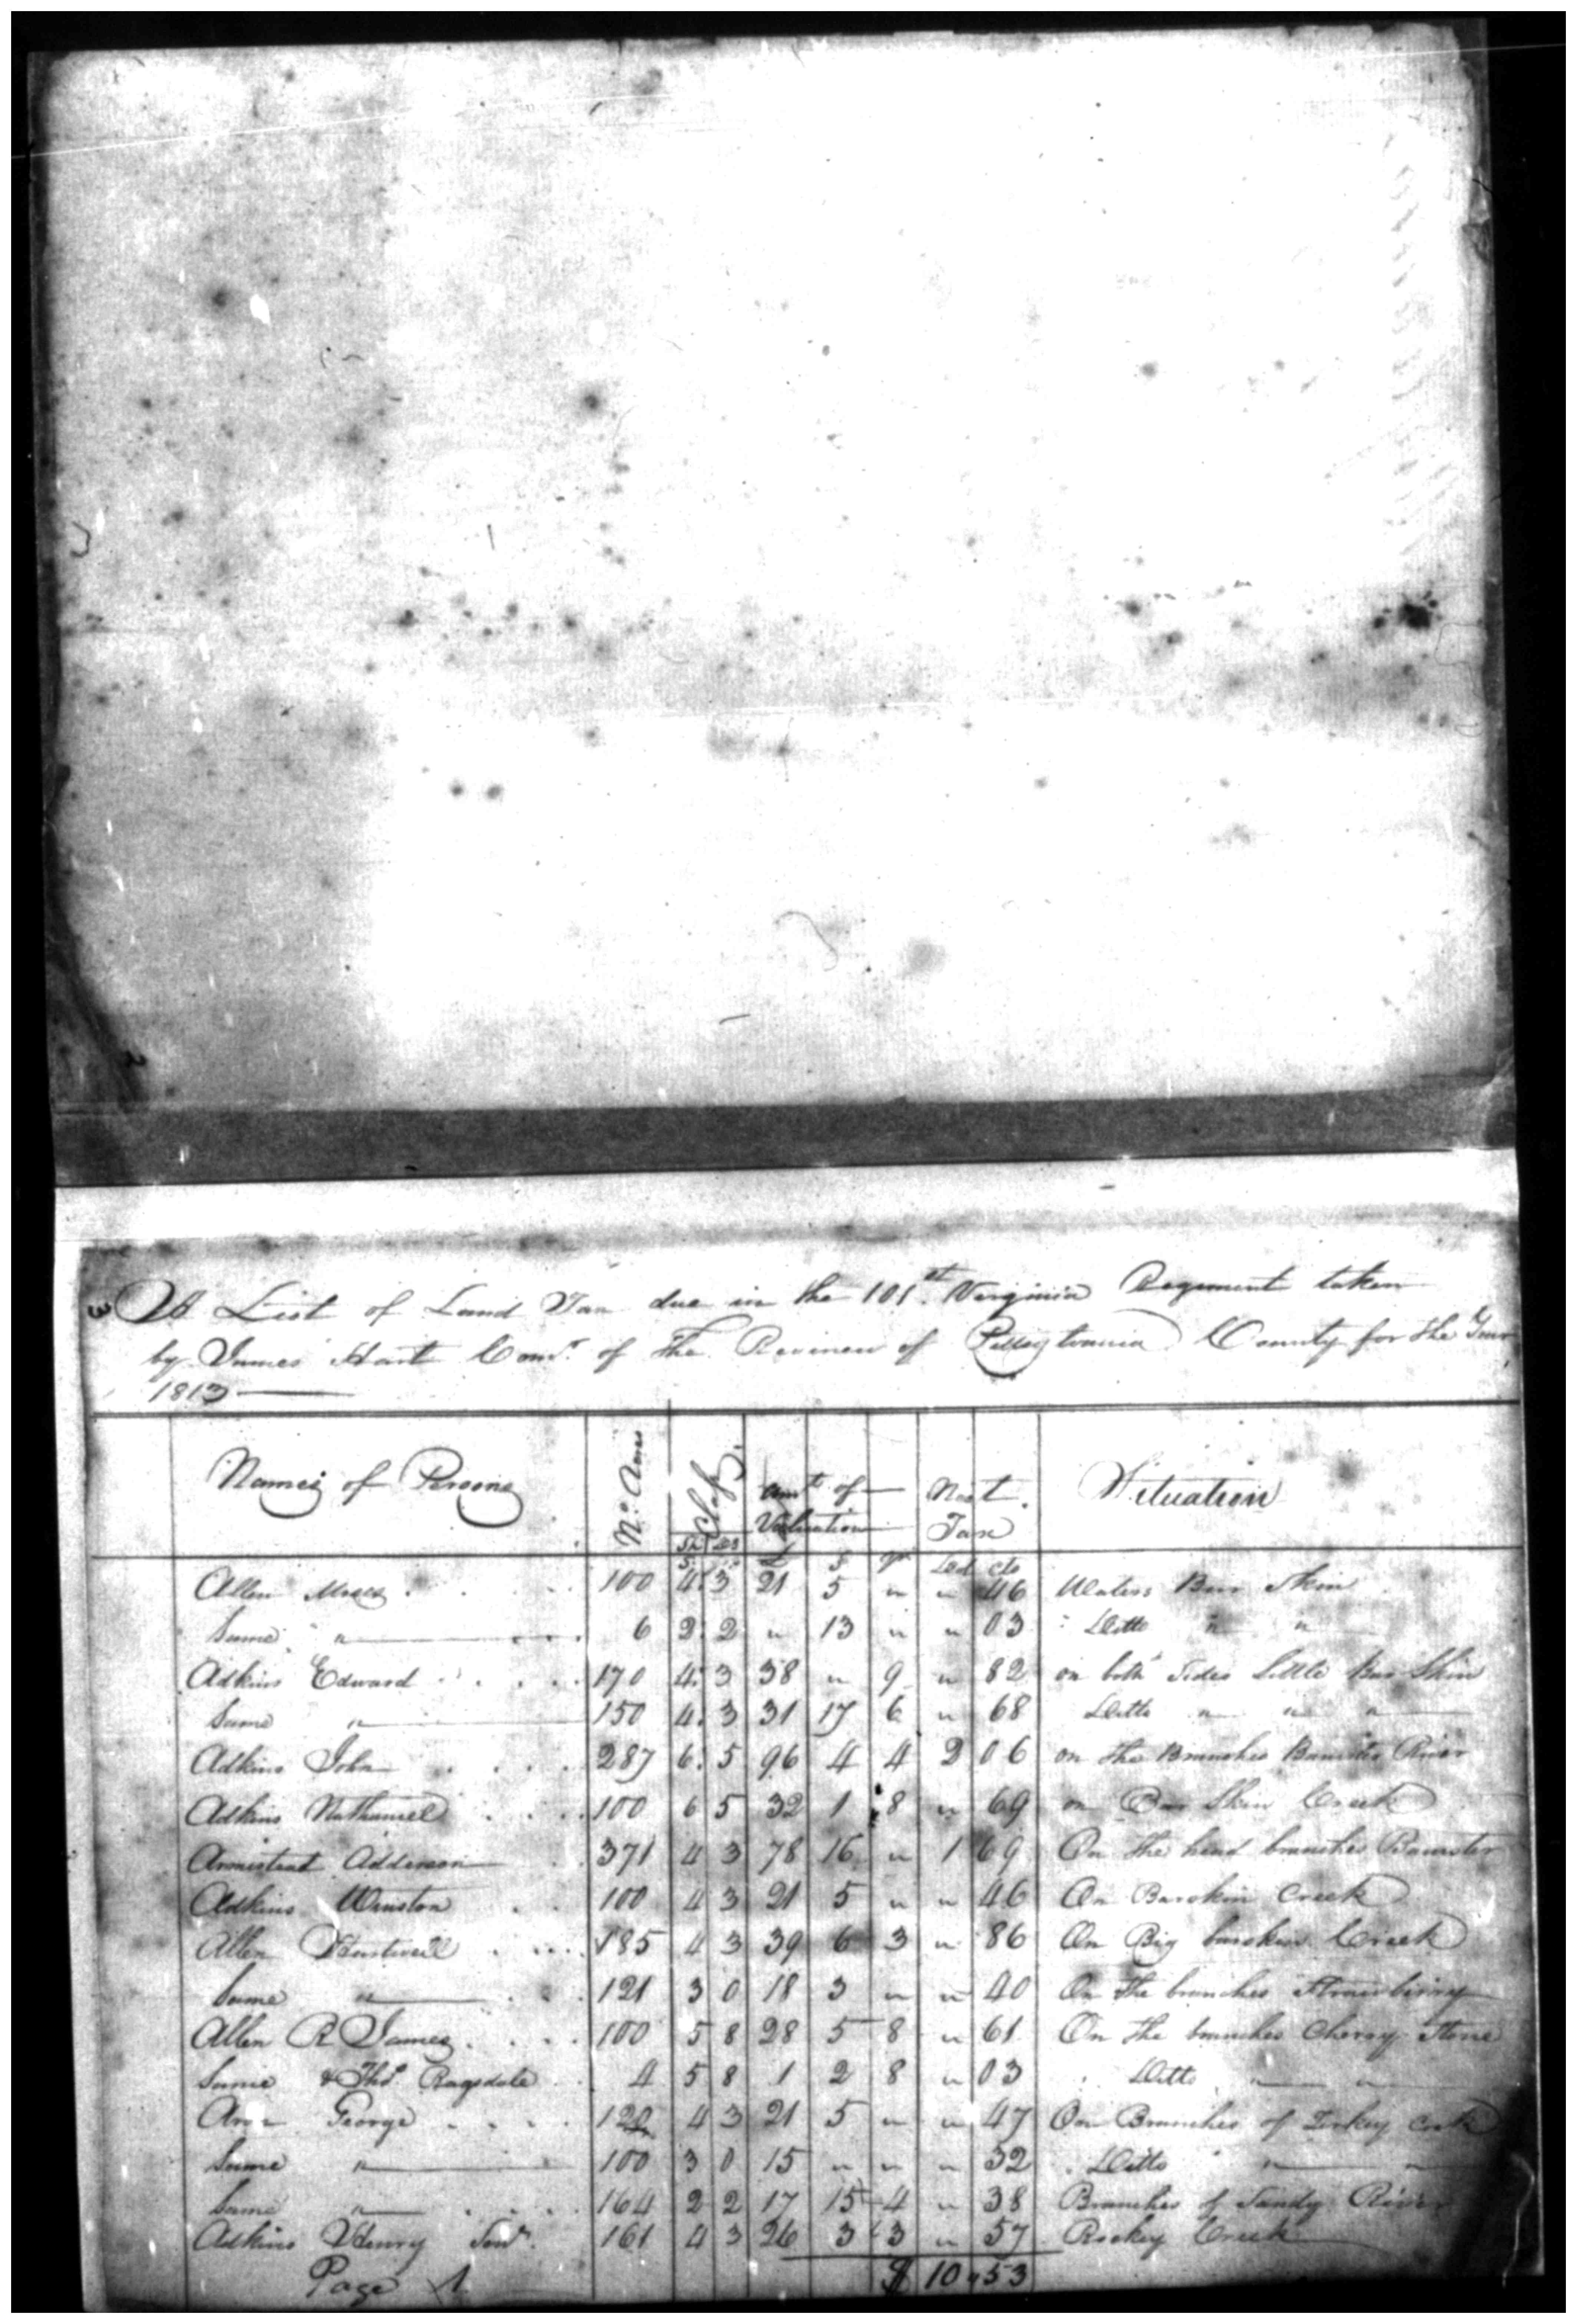 A List of Land Tax due in the 101st. Virginia Regiment taken
by James Hart Comr. of the Revenue of Pittsylvania County for the Year
1813
Names of Persons No. Acres Class. Amt. of Valuation Neat Tax Situation
Sh Ds £ S Dol Cts
Allen Moses 100 4 3 21 5 " " 46 Waters Bear Skin
Same " 6 2 2 " 13 " " 03 Ditto " "
Adkins Edward 170 4 3 38 " 9 " 82 on both Sides Little Bar Skin
Same " 150 4 3 31 17 6 " 68 Ditto " " "
Adkins John 287 6 5 96 4 4 2 06 on the Branches Banister River
Adkins Nathaniel 100 6 5 32 1 8 " 69 on Bar Skin Creek
Armistead Adderson 371 4 3 78 16 " 1 69 On the head branches Banister
Adkins Winston 100 4 3 21 5 " " 46 On Barskin Creek
Allen Hartwell 185 4 3 39 6 3 " 86 On Big barskin Creek
Same " 121 3 0 18 3 " " 40 On the branches Strawberry
Allen R James 100 5 8 28 5 8 " 61 On the branches Cherry Stone
Same & Thos. Ragsdale 4 5 8 1 2 8 " 03 Ditto " "
George 120 4 3 21 5 " " 47 On Branches of Turkey Creek
Same " 100 3 0 15 " " " 32 Ditto " "
Same " 164 2 2 17 15 4 " 38 Branches of Sandy River
Adkins Henry Senr. 161 4 3 26 3 3 " 57 Rockey Creek
Page 1 $ 10 " 53